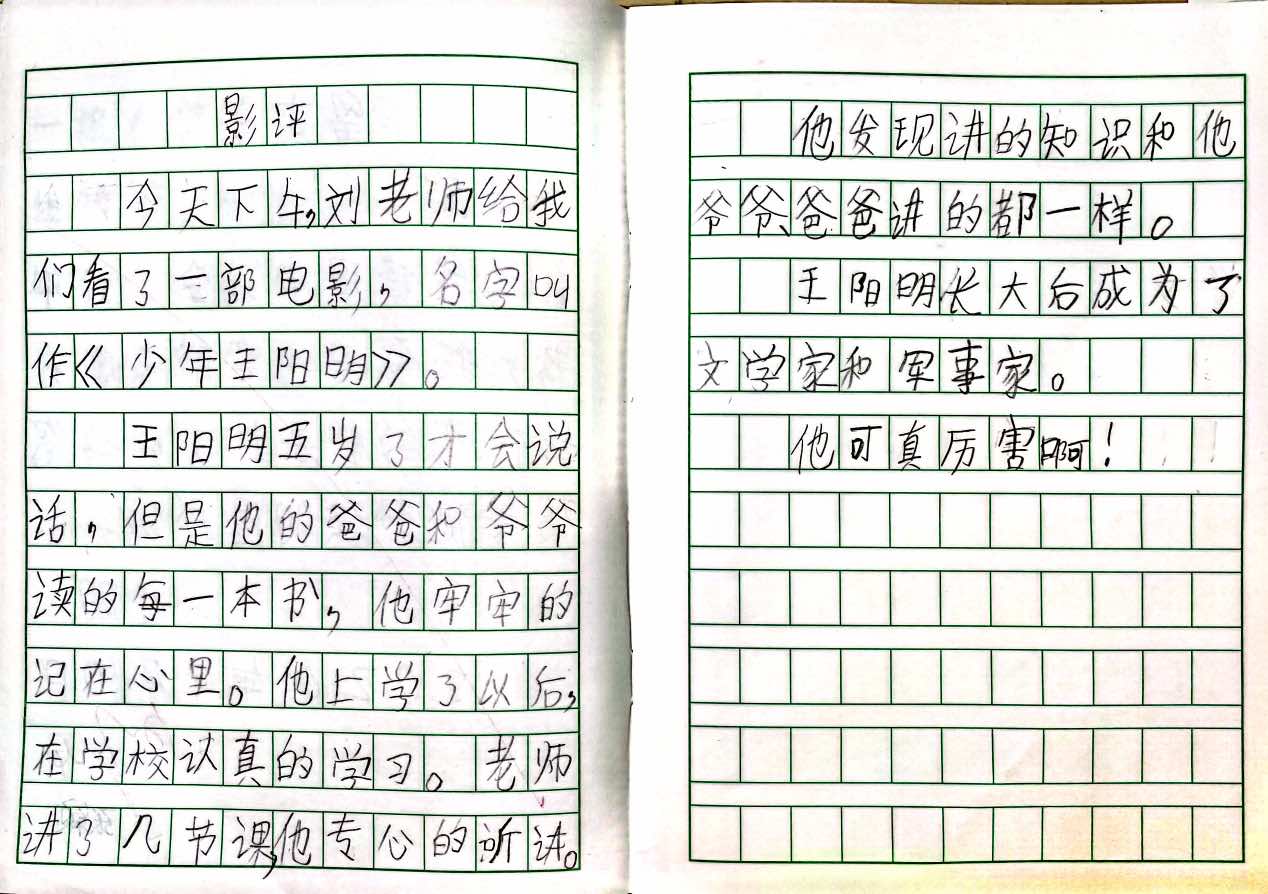 影评
今天下午,刘老师给我
们看了一部电影，名字叫
作《少年王阳明》。
王阳明五岁了才会说
话，但是他的爸爸和爷爷
读的每一本书，他牢牢的
记在心里。他上学了以后,
在学校认真的学习。老师
讲了几节课,他专心的听讲。
他发现讲的知识和他
爷爷、爸爸讲的都一样。
王阳明长大后成为了
文学家和军事家。
他可真厉害啊！